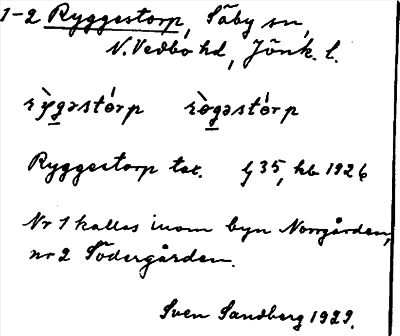 1-2 Ryggestorp, Säby sn,
N. Vedbo hd, Jönk. l.
rỳgəstórp rògəstórp
Ryggestorp tax. hb 1926
Nr 1 kallas inom byn Norrgården,
nr 2 Södergården.
Sven Sandberg 1929.